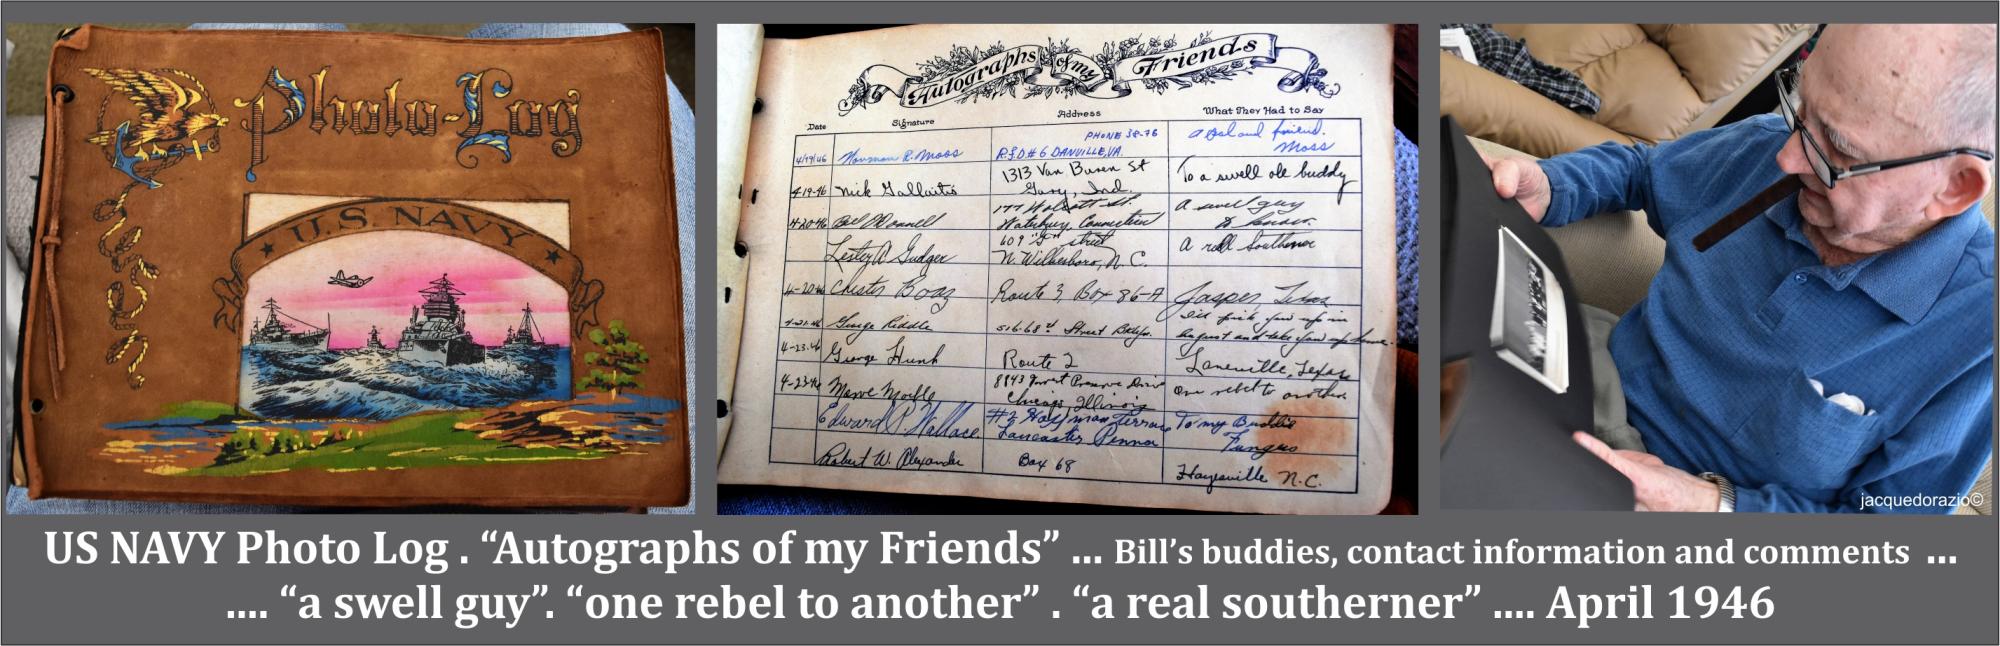 Photo-Log
U.S. NAVY
Autographs of my Friends
Date Signature Address What They Had to Say
4/19/46 Norman R. Moss PHONE 38-76 R.F.D #6 DANVILLE, VA. a pal and friend. Moss
4-19-46 Nick Gallaitis 1313 Van Buren St Gary, Ind. To a swell ole buddy
4-20-46 Bill O'Donnell 177 Walcott St. Waterbury, Connecticut A swell guy to know.
Lester A Gudger 609 "D" street N. Wilkesboro, N.C. A real Southerner
4-20-46 Chester Boaz Route 3, Box 86-A Jasper, Texas
4-21-46 George Riddle 516-68th Street Bklyn. I'll pick you up in August and take you up home.
4-23-46 George Hunk Route 2 Laneville, Texas
4-23-46 8943 Forest Preserve Drive Chicago, Illinois One rebel to another
Edward P. Wallace #2 Terrace Lancaster Penna To my Buddie Fungus
Robert W. Alexander Box 68 Hayesville N.C.
jacquedorazio©
US NAVY Photo Log . “Autographs of my Friends” ... Bill’s buddies, contact information and comments ...
.... “a swell guy”. “one rebel to another” . “a real southerner” .... April 1946